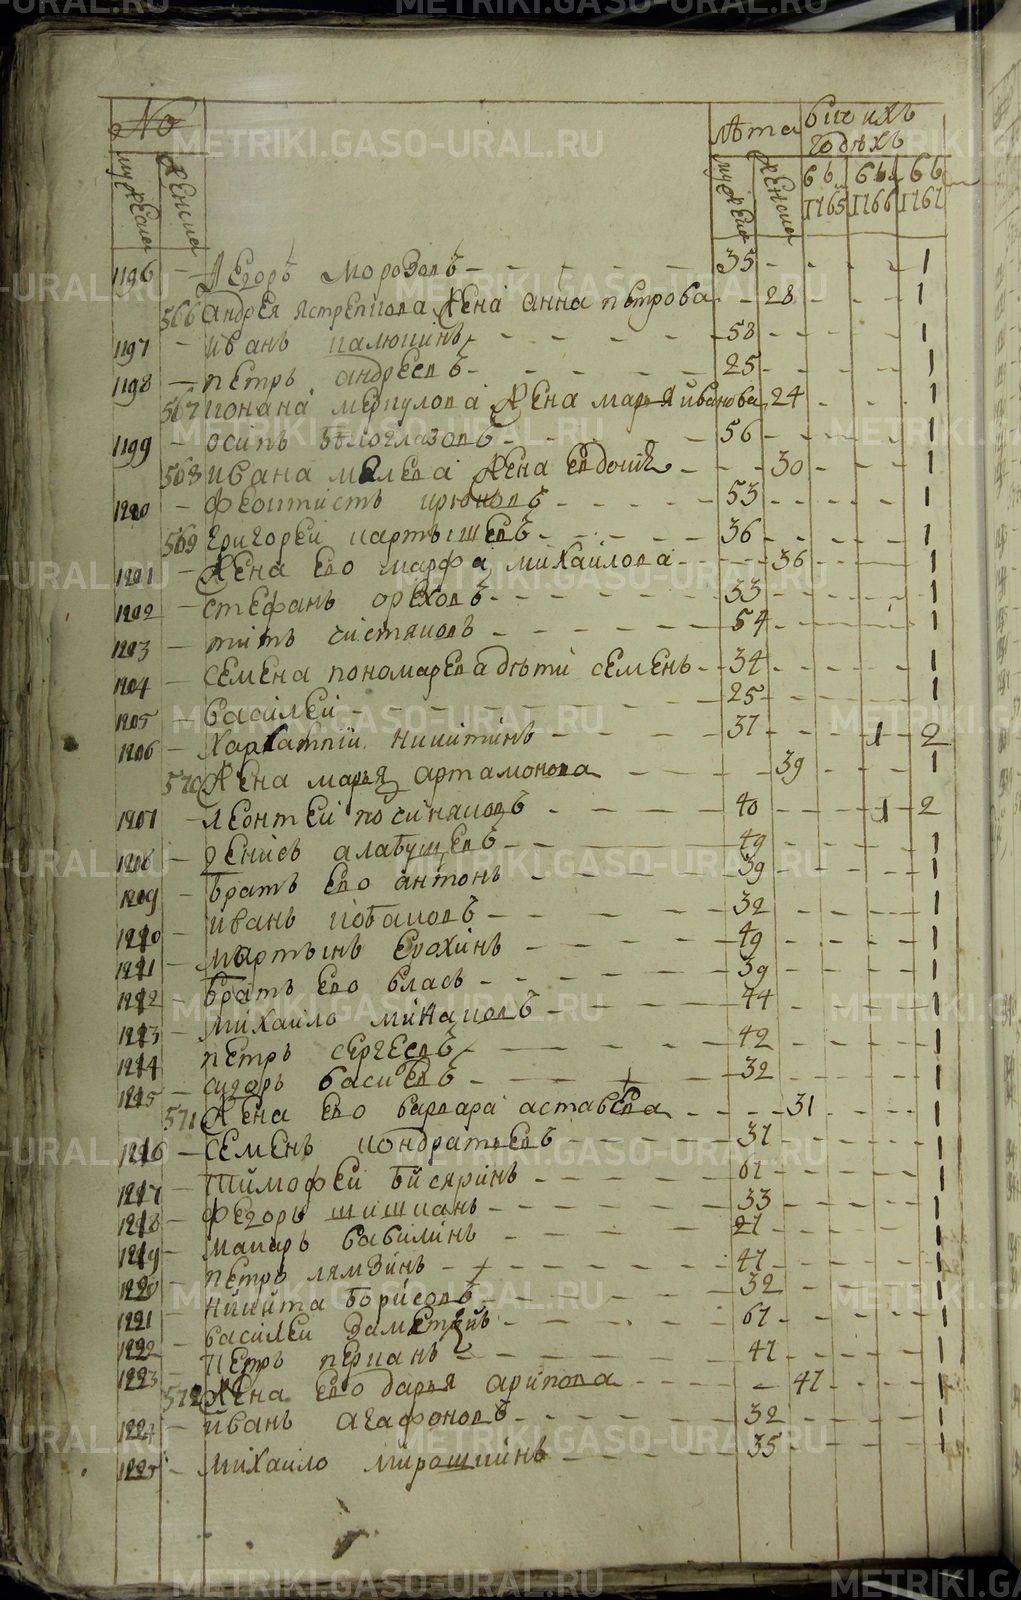 № лѣта бытихъ годѣхъ
мужеска женска мужеска женска въ 1765 въ 1766 въ 1767
1196 – Ѳедоръ Морозовъ – 35 – 1
566 Андрея Ястребкова жена Анна Петрова – 28 – 1
1197 – Иванъ – 58 – 1
1198 – Петръ Андреевъ – 25 – 1
567 Конана Меркулова жена Марья Иванова 24 – 1
1199 – Осипъ Белоглазовъ – 56 – 1
568 Ивана жена Евдокия – 30 – 1
1200 – Феоктистъ Крюковъ – 53 – 1
569 Григорей Картышевъ – 36 – 1
1201 – Жена ево Марфа Михайлова – 36 – 1
1202 – Стефанъ Ореховъ – 33 – 1
1203 – Титъ Чистяковъ – 54 – 1
1204 – Семена Пономарева дѣти Семенъ – 34 – 1
1205 – Василей – 25 – 1
1206 – Никитинъ – 37 – 1 2
570 Жена Марья Артамонова – 39 – 1
1207 – Леонтей Посиняковъ – 40 – 1 2
1208 – Денисъ Алабушевъ – 49 – 1
1209 – Братъ ево Антонъ – 39 – 1
1210 – Иванъ Кобаковъ – 32 – 1
1211 – Мартынъ Ерохинъ – 49 – 1
1212 – Братъ ево Власъ – 39 – 1
1213 – Михайло Минаковъ – 44 – 1
1214 – Петръ Сергеевъ – 42 – 1
1215 – Сидоръ – 32 – 1
571 Жена ево Варвара Аставьева – 31 – 1
1216 – Семенъ Кондратьевъ – 37 – 1
1217 – Тимофей Бисяринъ – 67 – 1
1218 – Федоръ Шишканъ – 33 – 1
1219 – Макаръ Вавилинъ – 27 – 1
1220 – Петръ Лямзинъ – 47 – 1
1221 – Никита Борисовъ – 32 – 1
1222 – Василей – 67 – 1
1223 – Петръ – 47 – 1
572 Жена ево Дарья Арипова – 47 – 1
1224 – Иванъ Агафоновъ – 32 – 1
1225 – Михайло Мирошкинъ – 35 – 1
METRIKI.GASO-URAL.RU